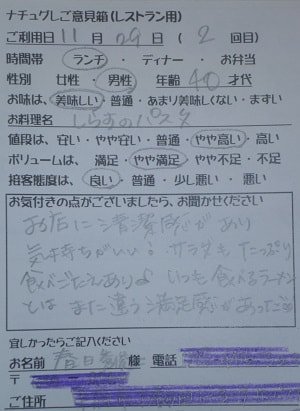 ナチュグしご意見箱(レストラン用)
ご利用日 11 月 29 日 ( 2 回目)
時間帯 ランチ ・ ディナー ・ お弁当
性別 女性 ・ 男性 年齢 40 才代
お味は、美味しい・普通・あまり美味しくない・まずい
お料理名 しらすのパスタ
値段は、安い・やや安い・普通・やや高い・高い
ボリュームは、満足・やや満足・やや不足・不足
接客態度は、良い・普通・少し悪い・悪い
お気付きの点がございましたら、お聞かせください
お店に清潔感があり
気持ちがいい! サラダもたっぷり
食べごたえあり♪ いつも食べるラーメン
とは また違う満足感があった
宜しかったらご記入ください
お名前 春日 様 電話
〒
ご住所